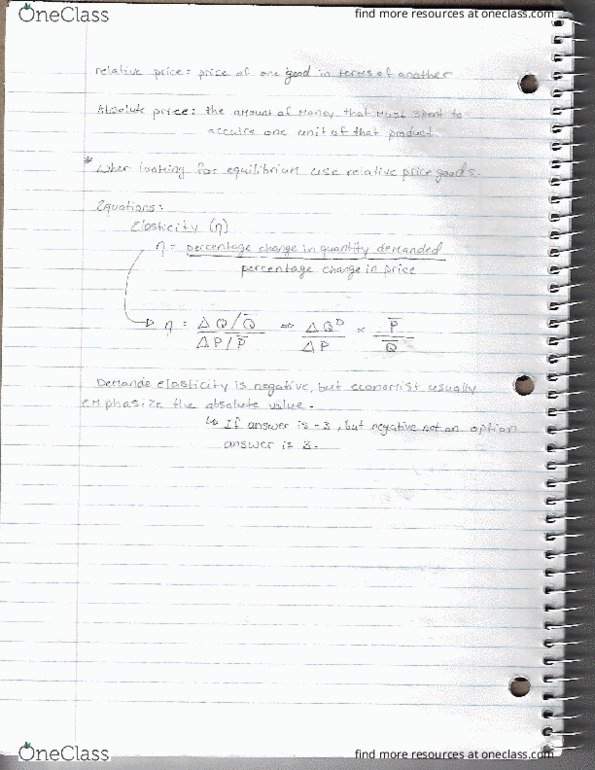 OneClass
find more resources at oneclass.com
relative price: price of one good in terms of another
Absolute price: the amount of money that must spent to
accuire one unit of that product.
* When looking for equilibrium use relative price goods.
Equations:
Elasticity (η)
η = percentage change in quantity demanded
percentage change in price
η = ΔQ/Q̅ ⇒ ΔQᴰ × P̅
ΔP/P̅ ΔP Q̅
Demande elasticity is negative, but economist usually
emphasize the absolute value.
↳ If answer is -3, but negative not an option
answer is 3.
OneClass
find more resources at oneclass.com